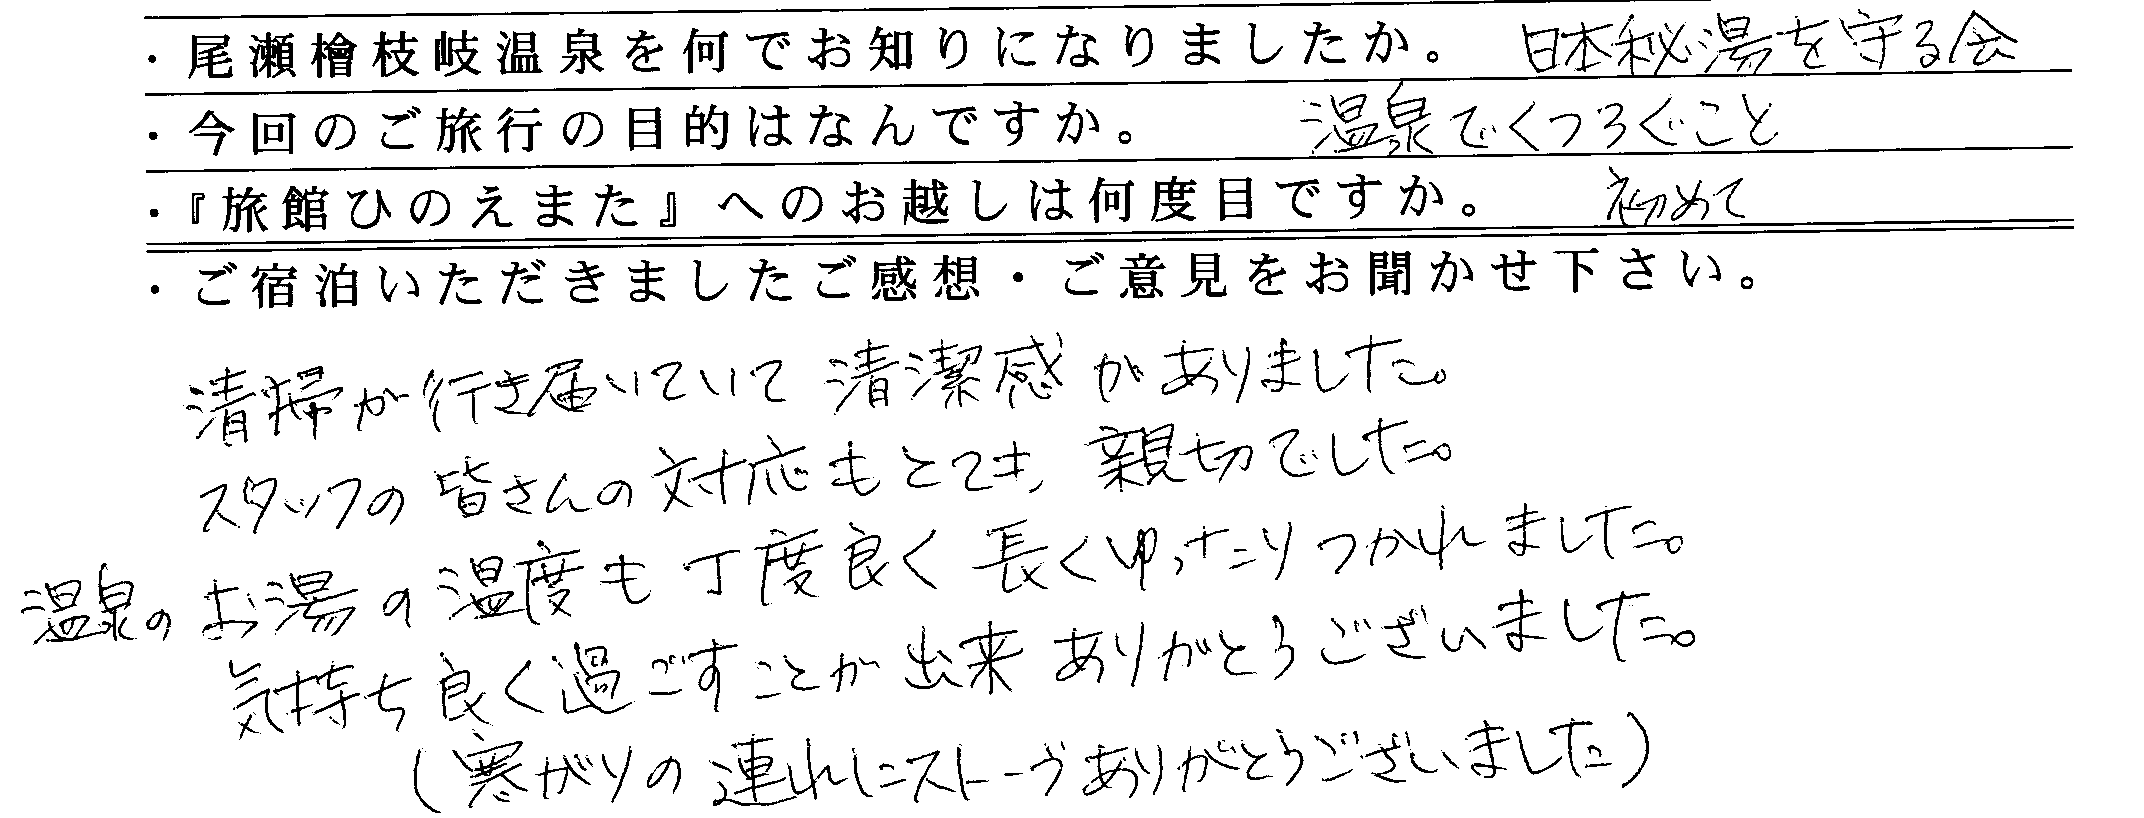 ・尾瀬檜枝岐温泉を何でお知りになりましたか。 日本秘湯を守る会
・今回のご旅行の目的はなんですか。 温泉でくつろぐこと
・『旅館ひのえまた』へのお越しは何度目ですか。 初めて
・ご宿泊いただきましたご感想・ご意見をお聞かせ下さい。
清掃が行き届いていて清潔感がありました。
スタッフの皆さんの対応もとても親切でした。
温泉のお湯の温度も丁度良く長くゆったりつかれました。
気持ち良く過ごすことが出来ありがとうございました。
(寒がりの連れにストーヴありがとうございました)